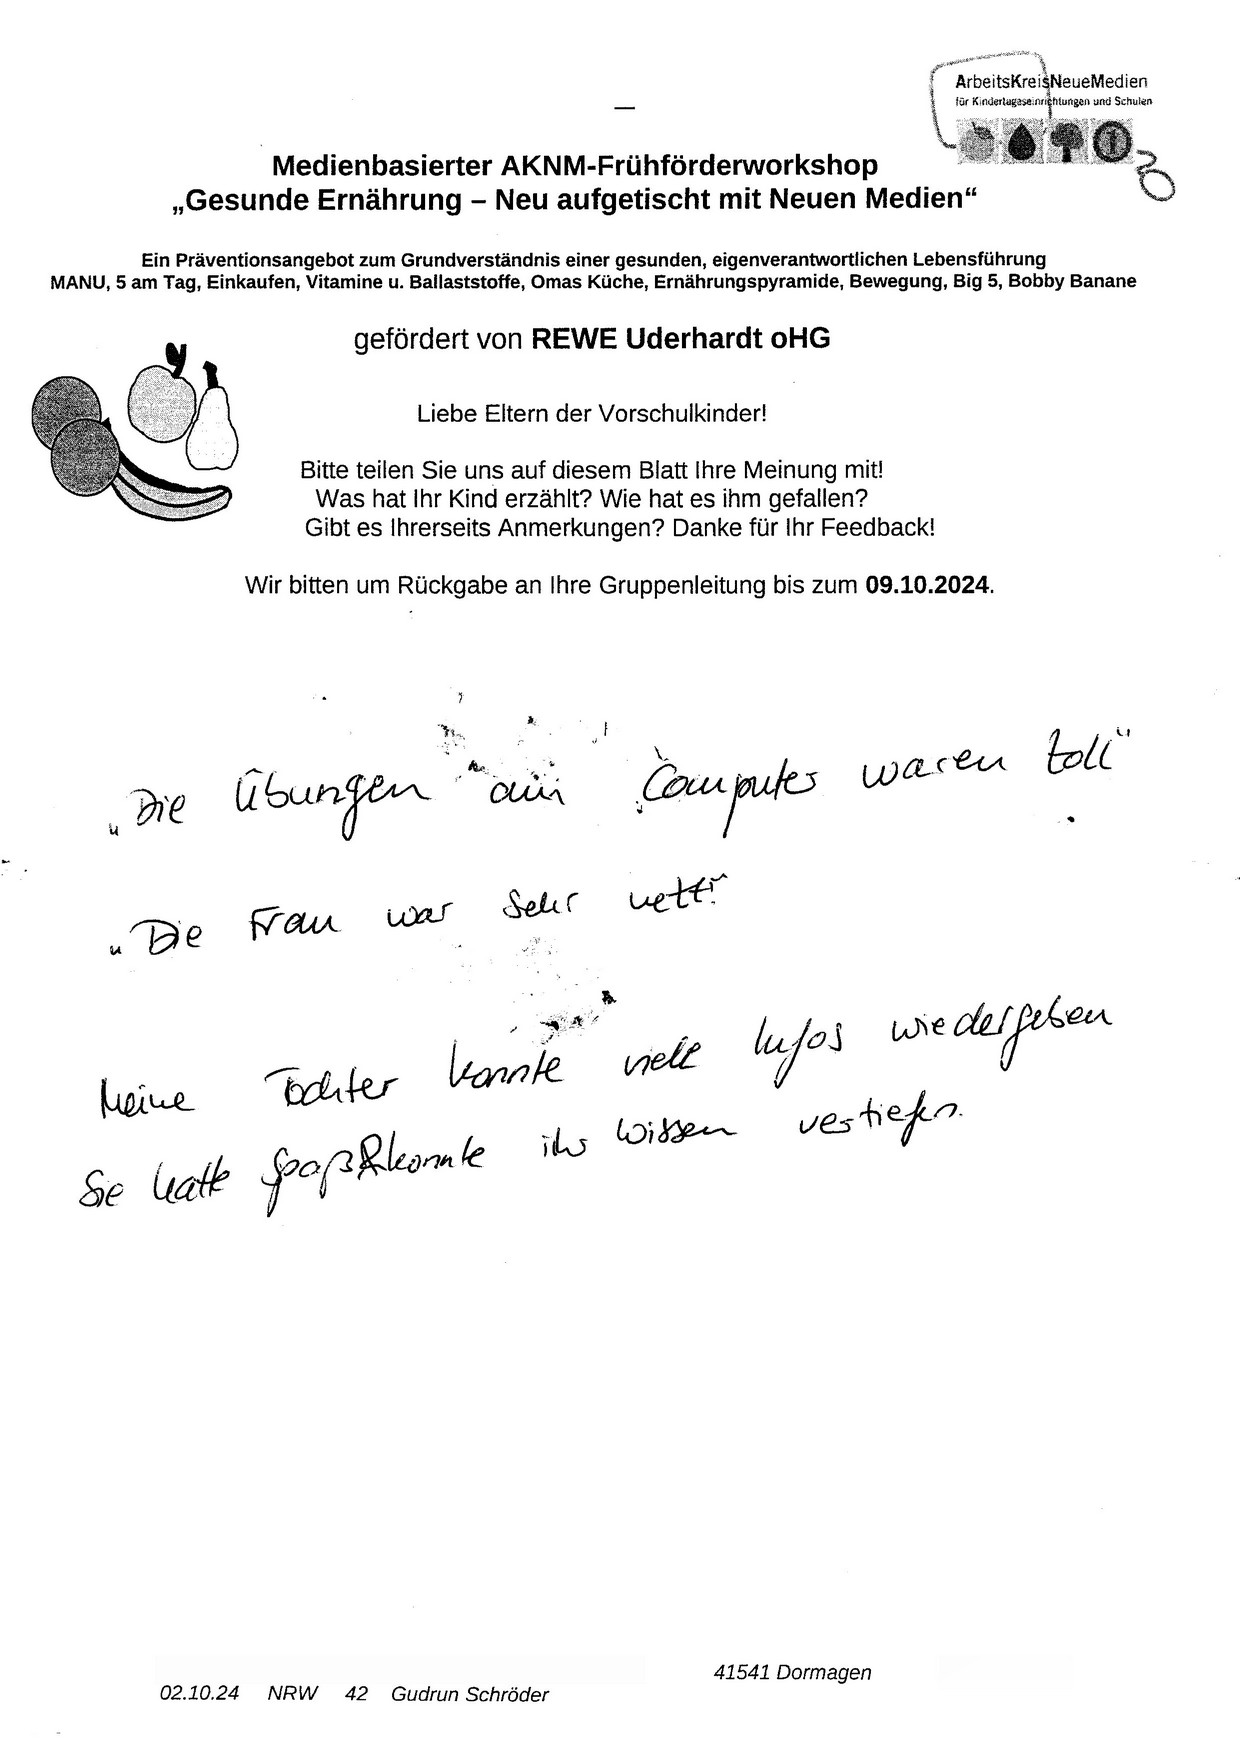 ArbeitsKreisNeueMedien
für Kindertageseinrichtungen und Schulen
Medienbasierter AKNM-Frühförderworkshop
„Gesunde Ernährung – Neu aufgetischt mit Neuen Medien“
Ein Präventionsangebot zum Grundverständnis einer gesunden, eigenverantwortlichen Lebensführung
MANU, 5 am Tag, Einkaufen, Vitamine u. Ballaststoffe, Omas Küche, Ernährungspyramide, Bewegung, Big 5, Bobby Banane
gefördert von REWE Uderhardt oHG
Liebe Eltern der Vorschulkinder!
Bitte teilen Sie uns auf diesem Blatt Ihre Meinung mit!
Was hat Ihr Kind erzählt? Wie hat es ihm gefallen?
Gibt es Ihrerseits Anmerkungen? Danke für Ihr Feedback!
Wir bitten um Rückgabe an Ihre Gruppenleitung bis zum 09.10.2024.
„Die Übungen am Computer waren toll“
„Die Frau war sehr nett“
Meine Tochter konnte viele Infos wiedergeben
Sie hatte Spaß & konnte ihr Wissen vertiefen.
41541 Dormagen
02.10.24 NRW 42 Gudrun Schröder